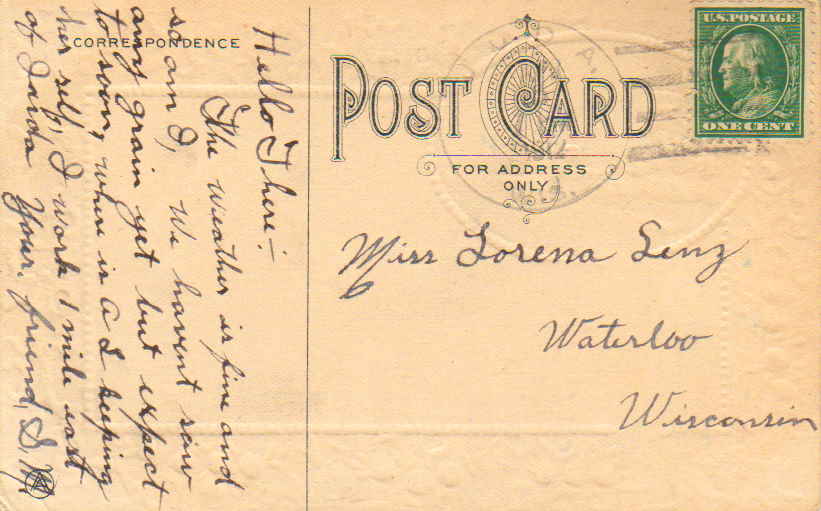 CORRESPONDENCE
Hello There:-
The weather is fine and
so am I, We havent sown
any grain yet but expect
to soon, where is A L keeping
her self, I work 1 mile east
of Your friend, S. M.
POST CARD
FOR ADDRESS
ONLY
U.S. POSTAGE
ONE CENT
Miss Lorena Lenz
Waterloo
Wisconsin